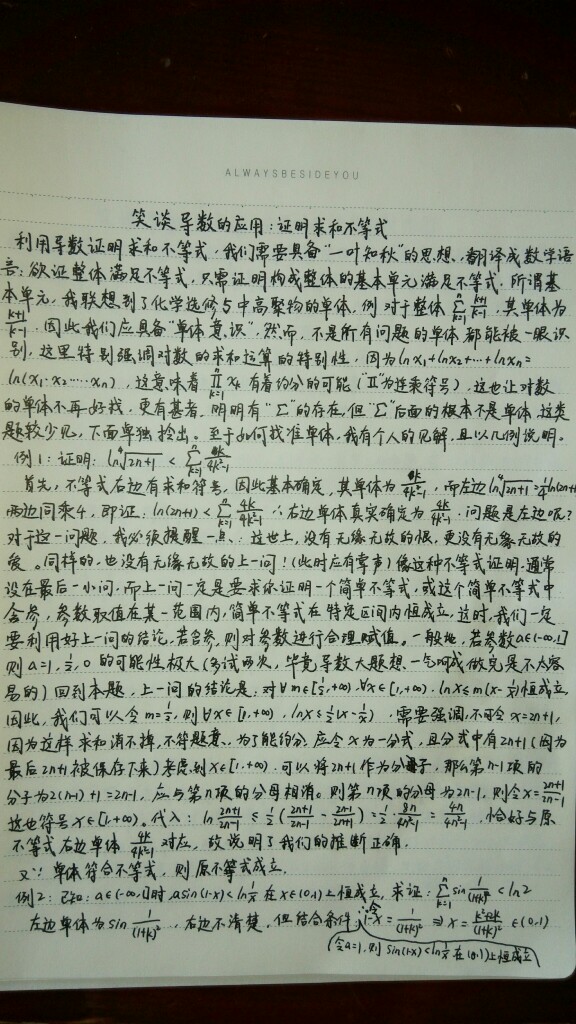 ALWAYSBESIDEYOU
笑谈导数的应用：证明求和不等式
利用导数证明求和不等式，我们需要具备“一叶知秋”的思想，翻译成数学语
言：欲证整体满足不等式，只需证明构成整体的基本单元满足不等式．所谓基
本单元，我联想到了化学选修5中高聚物的单体，例对于整体∑_{k=1}^{n} (k+1)/(k-1)，其单体为
(k+1)/(k-1)．因此我们应具备“单体意识”，然而，不是所有问题的单体都能被一眼识
别，这里特别强调对数的求和运算的特别性，因为lnx₁+lnx₂+…+lnxₙ=
ln(x₁·x₂…xₙ)，这意味着∏_{k=1}^{n} xₖ有着约分的可能（“∏”为连乘符号），这也让对数
的单体不再好找，更有甚者，明明有“∑”的存在，但“∑”后面的根本不是单体，这类
题较少见，下面单独拎出。至于如何找准单体，我有个人的见解，且以几例说明。
例1：证明：ln⁴√(2n+1) < ∑_{k=1}^{n} k/(4k²-1)
首先，不等式右边有求和符号，因此基本确定，其单体为 k/(4k²-1)，而左边ln⁴√(2n+1)=¼ln(2n+1)
两边同乘4，即证：ln(2n+1)<∑_{k=1}^{n} 4k/(4k²-1) ∴右边单体真实确定为 4k/(4k²-1)．问题是左边呢？
对于这一问题，我必须提醒一点：这世上，没有无缘无故的恨，更没有无缘无故的
爱。同样的，也没有无缘无故的上一问！（此时应有掌声）像这种不等式证明，通常
设在最后一小问，而上一问一定是要求你证明一个简单不等式，或这个简单不等式中
含参，参数取值在某一范围内，简单不等式在特定区间内恒成立，这时，我们一定
要利用好上一问的结论，若含参，则对参数进行合理赋值。一般地，若参数a∈(-∞,1]
则a=1,½,0的可能性极大（多试两次，毕竟导数大题想一气呵成做完是不太容
易的）回到本题，上一问的结论是：对∀m∈[½,+∞)，∀x∈[1,+∞)，lnx≤m(x-1/x)恒成立，
因此，我们可以令m=½，则∀x∈[1,+∞)，lnx≤½(x-1/x)，需要强调，不可令x=2n+1，
因为这样求和消不掉，不符题意，为了能约分，应令x为一分式，且分式中有2n+1（因为
最后2n+1被保存下来）考虑到x∈[1,+∞)．可以将2n+1作为分子，那么第n-1项的
分子为2(n-1)+1=2n-1，应与第n项的分母相消。则第n项的分母为2n-1，则令x=(2n+1)/(2n-1)
这也符号x∈[1,+∞)。代入：ln (2n+1)/(2n-1) ≤ ½((2n+1)/(2n-1) - (2n-1)/(2n+1)) = ½·8n/(4n²-1) = 4n/(4n²-1)，恰好与原
不等式右边单体 4k/(4k²-1) 对应，故说明了我们的推断正确．
又∵单体符合不等式，则原不等式成立．
例2：已知：a∈(-∞,1]时，asin(1-x)<ln 1/x 在x∈(0,1)上恒成立，求证：∑_{k=1}^{n} sin 1/(1+k)² < ln2
左边单体为sin 1/(1+k)²，右边不清楚，但结合条件，令1-x=1/(1+k)² ⇒ x=(k²+2k)/(1+k)² ∈(0,1)
（令a=1，则sin(1-x)<ln 1/x 在(0,1)上恒成立）